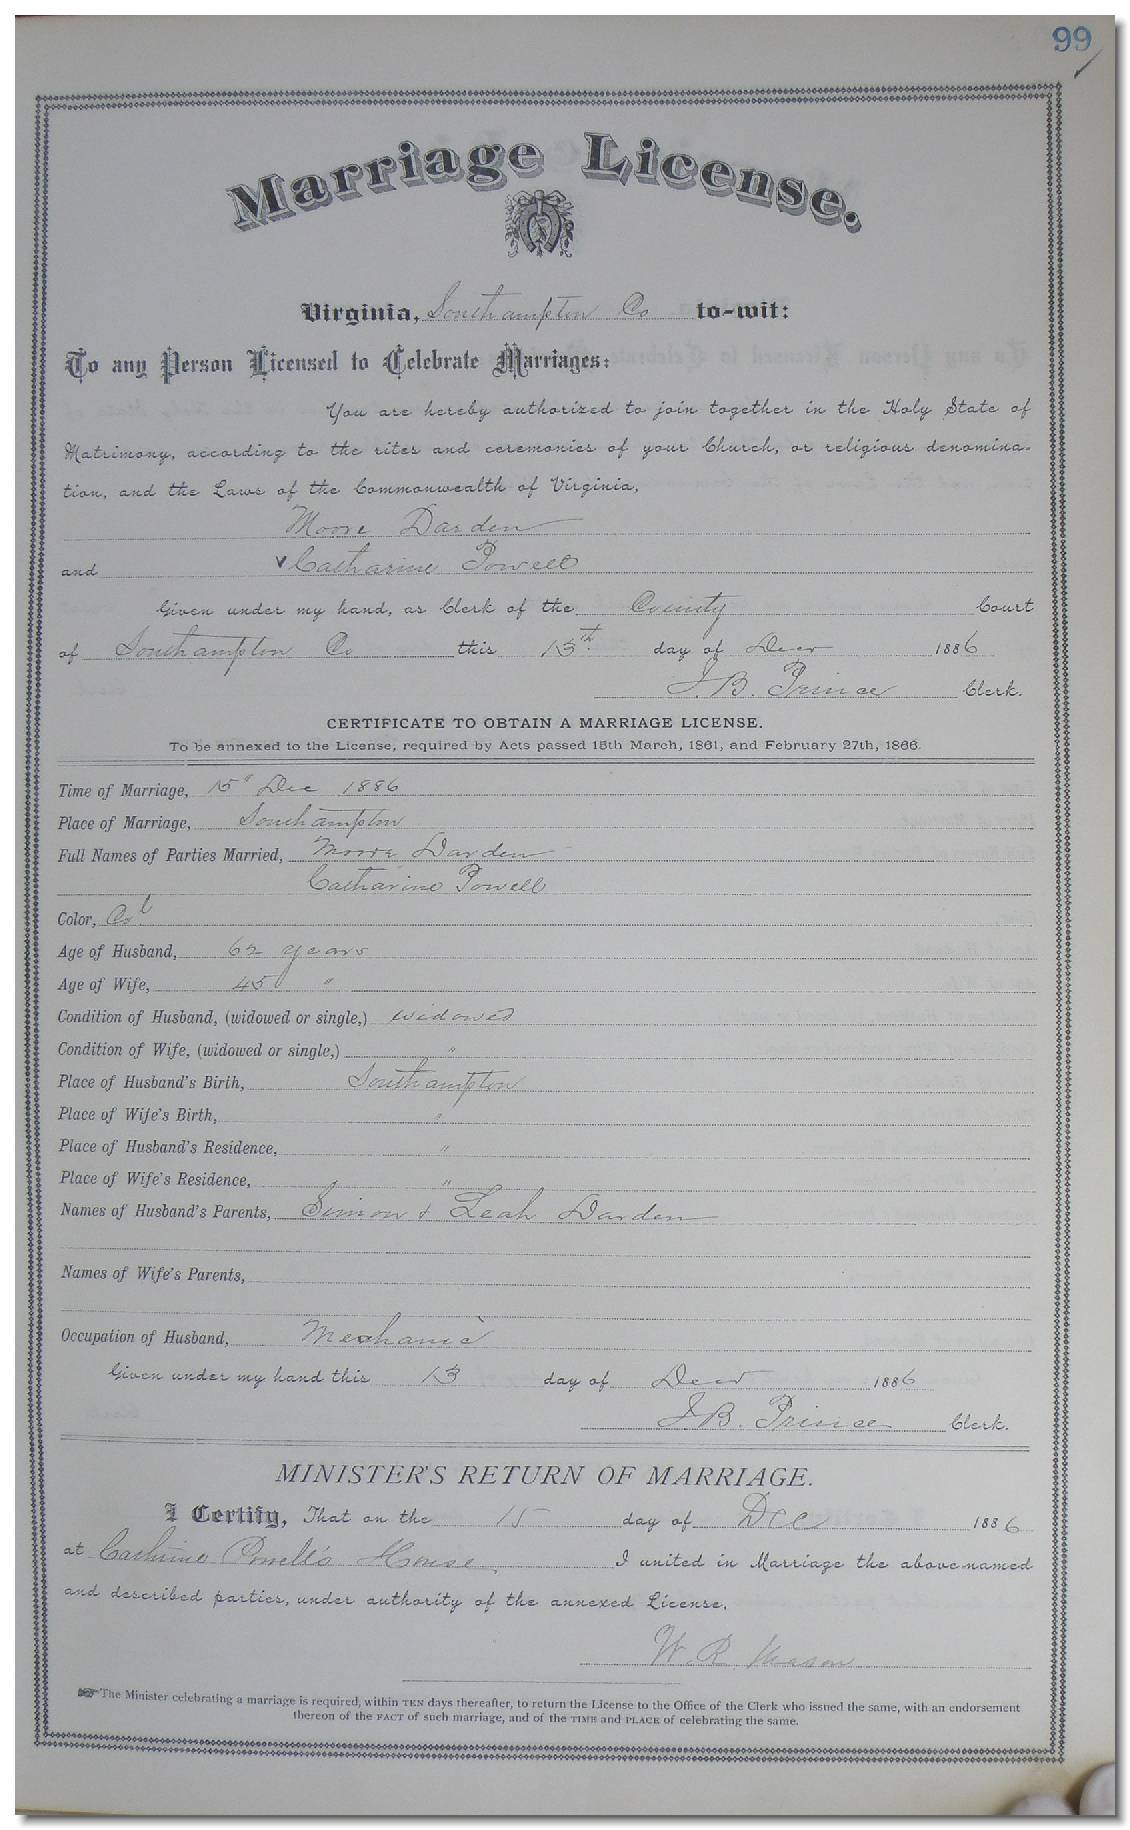 99
Marriage License.
Virginia, Southampton Co to-wit:
To any Person Licensed to Celebrate Marriages:
You are hereby authorized to join together in the Holy State of
Matrimony, according to the rites and ceremonies of your Church, or religious denomina-
tion, and the Laws of the Commonwealth of Virginia,
Moore Darden
and Catharine Powell
Given under my hand, as Clerk of the County Court
of Southampton Co this 13th day of Decr 1886
J. B. Prince Clerk.
CERTIFICATE TO OBTAIN A MARRIAGE LICENSE.
To be annexed to the License, required by Acts passed 15th March, 1861, and February 27th, 1866.
Time of Marriage, 15" Dec 1886
Place of Marriage, Southampton
Full Names of Parties Married, Moore Darden
Catharine Powell
Color, Col
Age of Husband, 62 years
Age of Wife, 45 "
Condition of Husband, (widowed or single,) widowed
Condition of Wife, (widowed or single,) "
Place of Husband's Birth, Southampton
Place of Wife's Birth, "
Place of Husband's Residence, "
Place of Wife's Residence, "
Names of Husband's Parents, Simon & Leah Darden
Names of Wife's Parents,
Occupation of Husband, Mechanic
Given under my hand this 13 day of Decr 1886
J. B. Prince Clerk.
MINISTER'S RETURN OF MARRIAGE.
I Certify, That on the 15 day of Dec 1886
at Powell's House I united in Marriage the above-named
and described parties, under authority of the annexed License.
W. R. Mason
The Minister celebrating a marriage is required, within TEN days thereafter, to return the License to the Office of the Clerk who issued the same, with an endorsement
thereon of the FACT of such marriage, and of the TIME and PLACE of celebrating the same.